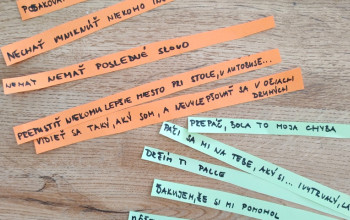 POĎAKOVAŤ
NECHAŤ VYNIKNÚŤ NIEKOHO INÉHO
NEMAŤ POSLEDNÉ SLOVO
PREPUSTIŤ NIEKOMU LEPŠIE MIESTO PRI STOLE, V AUTOBUSE...
VIDIEŤ SA TAKÝ, AKÝ SOM, A NEVYLEPŠOVAŤ SA V OČIACH
DRUHÝCH
PREPÁČ, BOLA TO MOJA CHYBA
PÁČI SA MI NA TEBE, AKÝ SI... (VYTRVALÝ,
DRŽÍM TI PALCE
ĎAKUJEM, ŽE SI MI POMOHOL